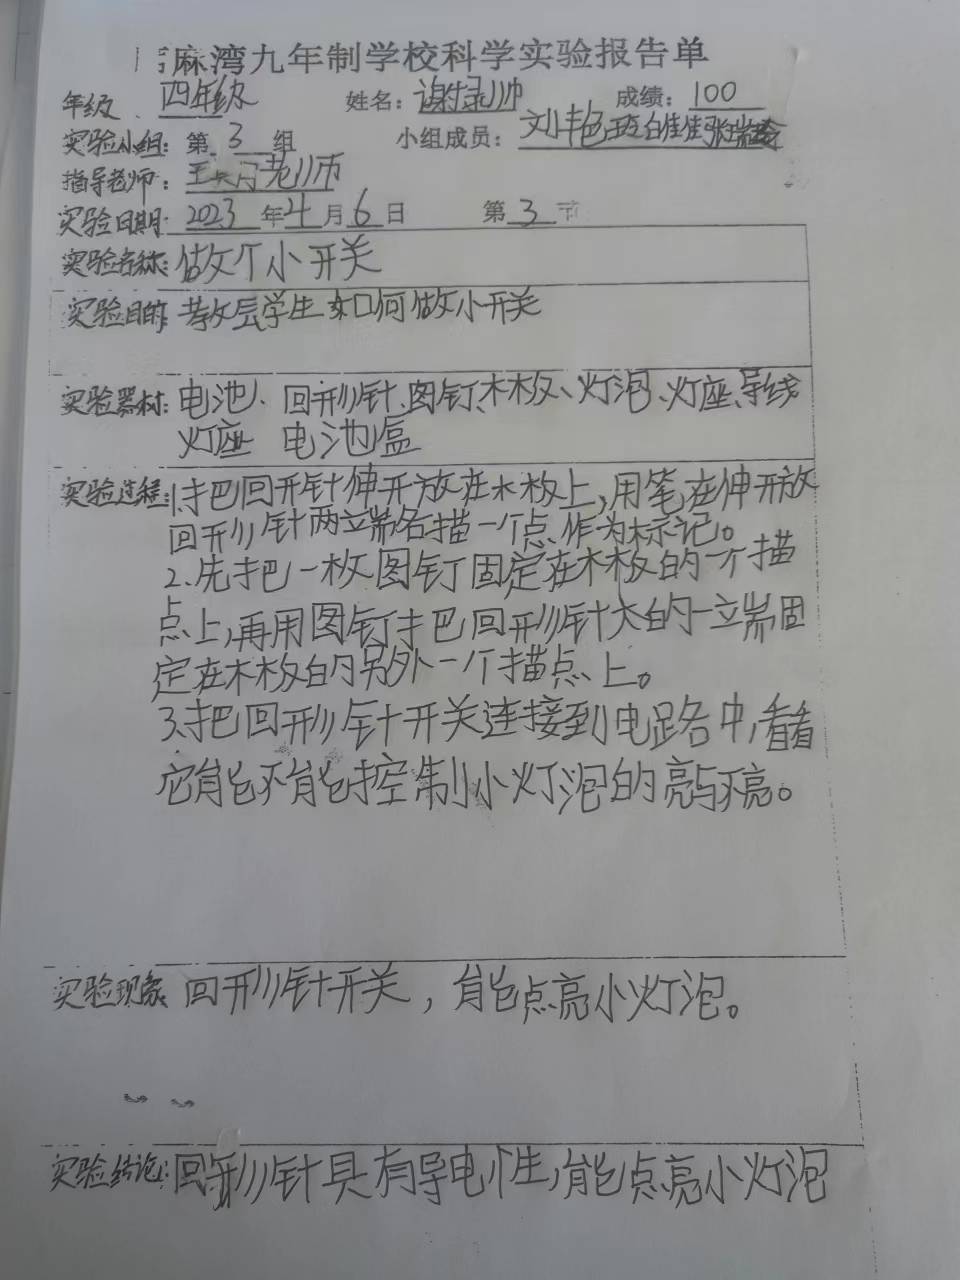 麻湾九年制学校科学实验报告单
年级 四年级 姓名：谢绿帅 成绩：100
实验小组：第 3 组 小组成员：刘丰艳
指导老师： 老师
实验日期：2023年4月6日 第3节
实验名称：做个小开关
实验目的：教会学生如何做小开关
实验器材：电池、回形针、图钉、木板、灯泡、灯座、导线
灯座 电池盒
实验过程：1.把回形针伸开放在木板上，用笔在伸开放
回形针两端各描一个点，作为标记。
2.先把一枚图钉固定在木板的一个描
点上，再用图钉把回形针大的一端固
定在木板的另外一个描点上。
3.把回形针开关连接到电路中，看看
它能不能控制小灯泡的亮与不亮。
实验现象 回形针开关，能点亮小灯泡。
实验结论：回形针具有导电性，能点亮小灯泡